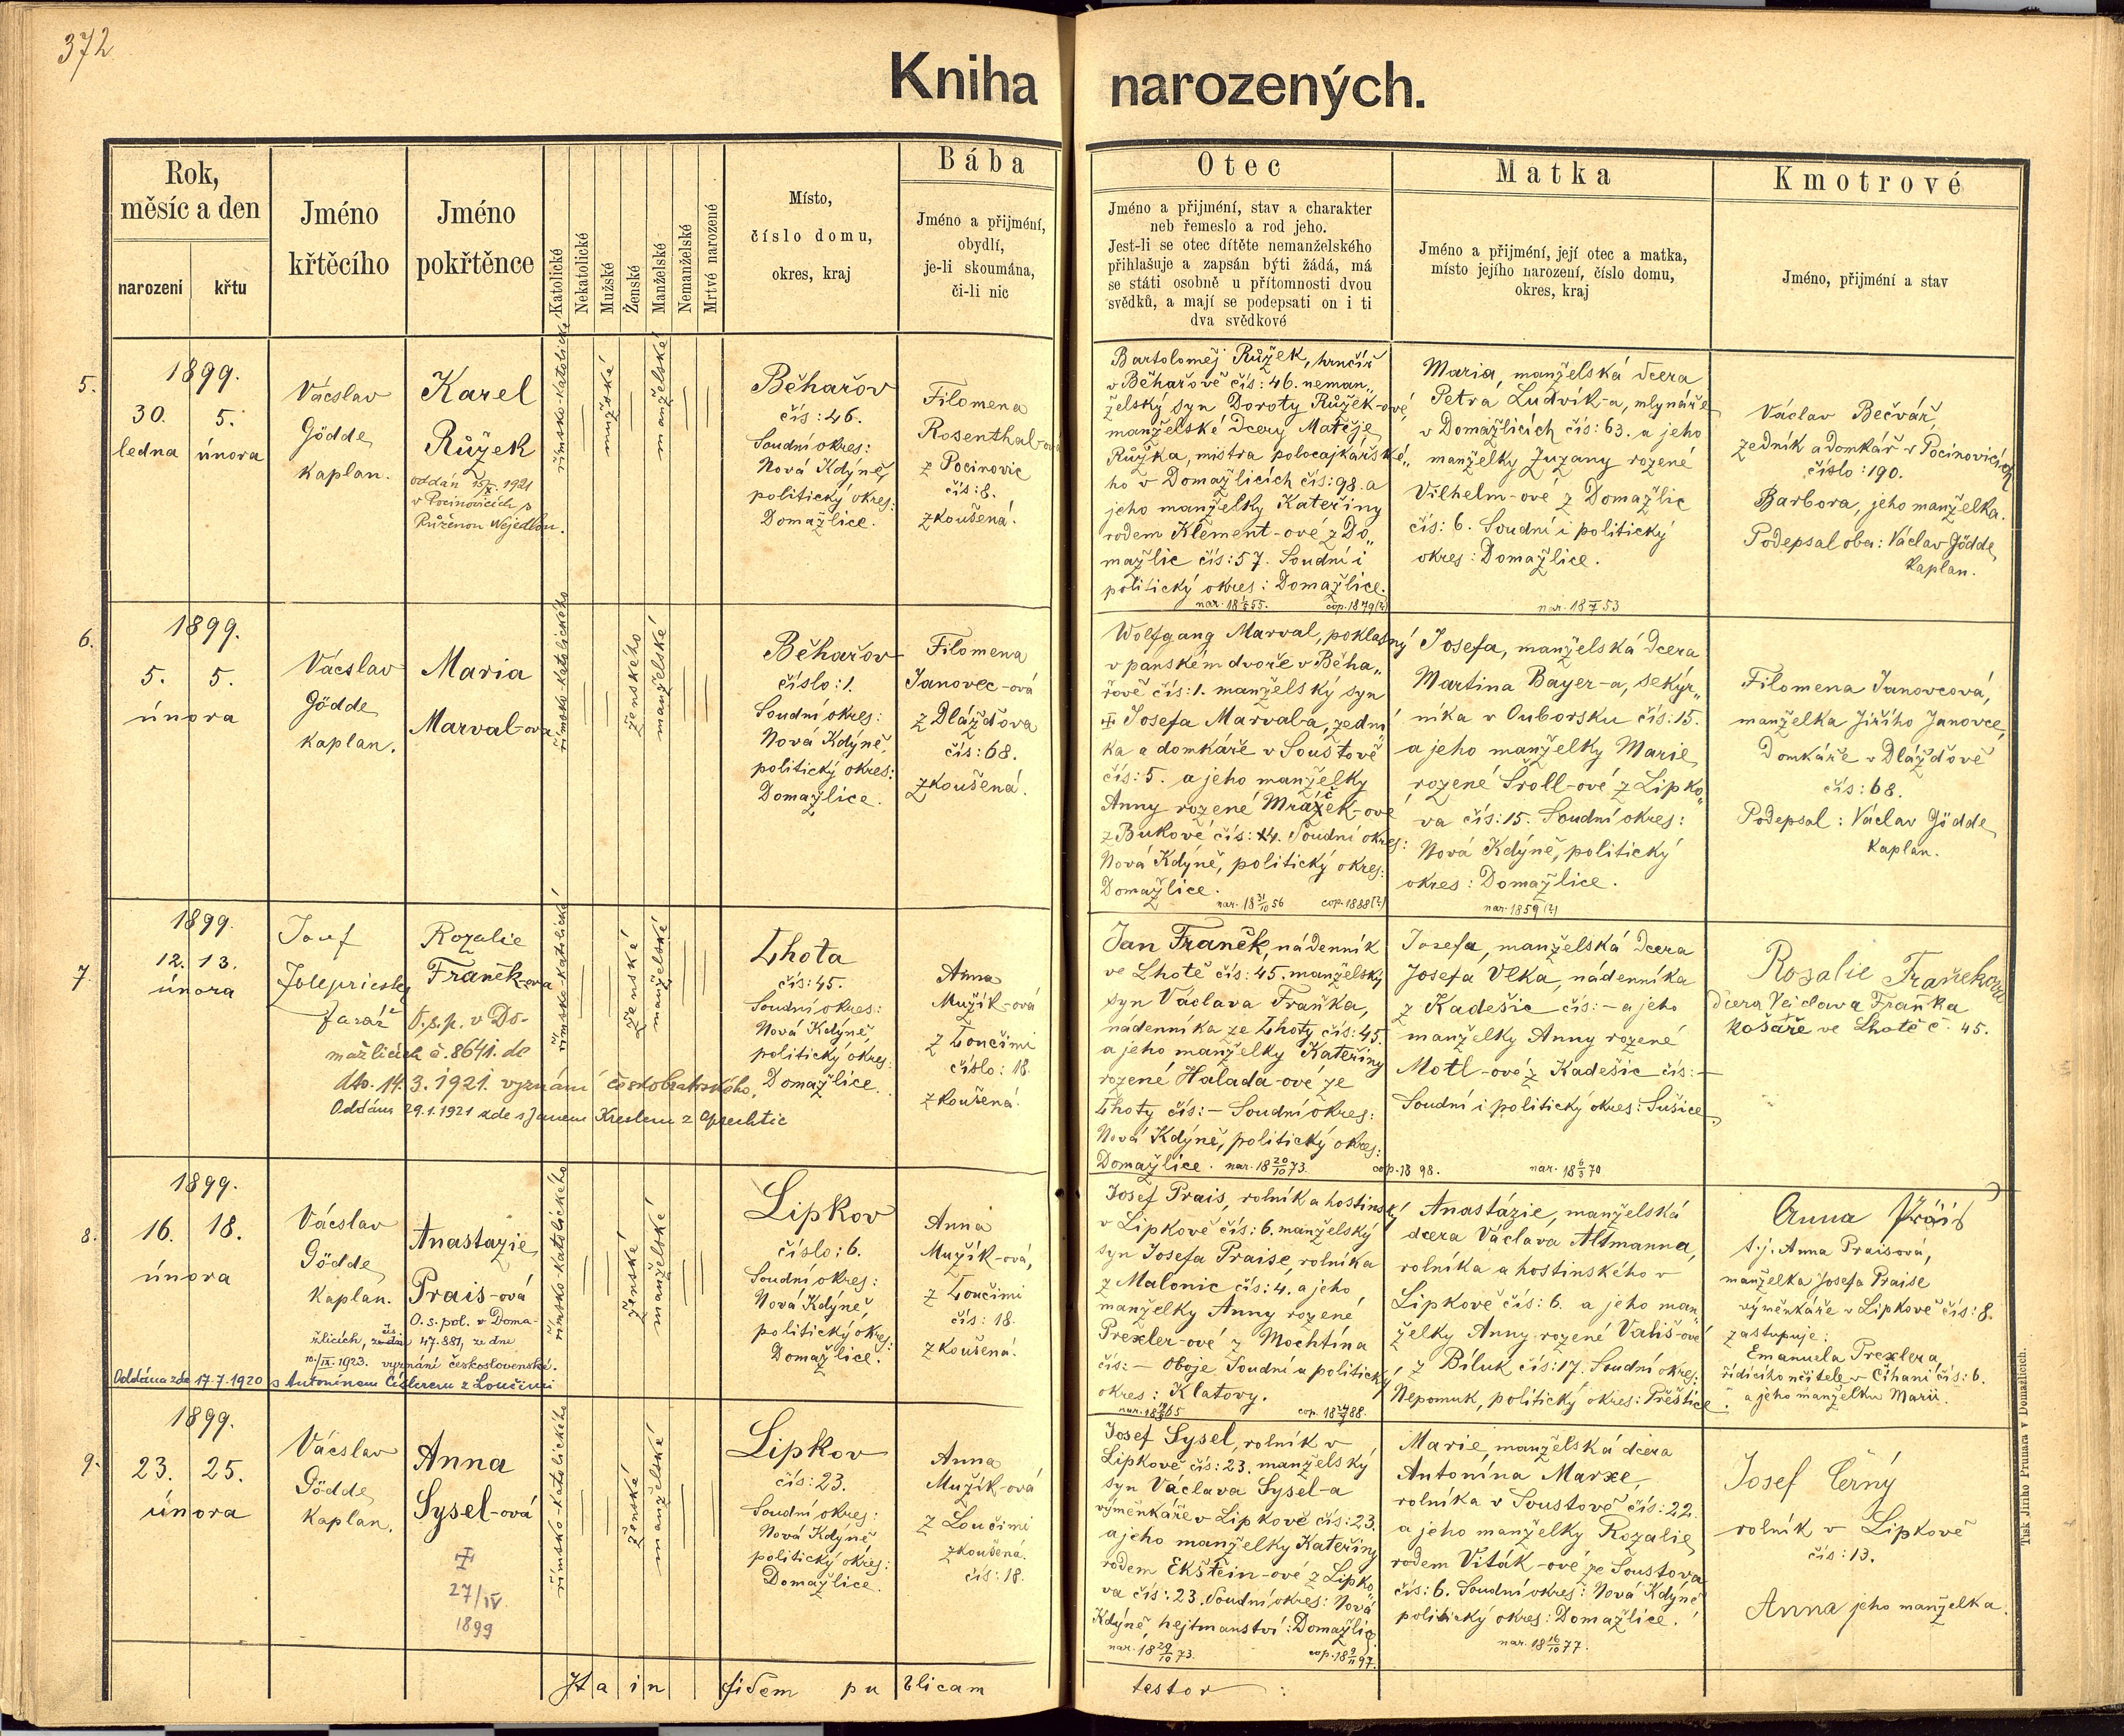 372
Kniha narozených.
Rok,
měsíc a den
narození
křtu
Jméno
křtěcího
Jméno
pokřtěnce
Katolické
Nekatolické
Mužské
Ženské
Manželské
Nemanželské
Mrtvé narozené
Místo,
číslo domu,
okres, kraj
Bába
Jméno a přijmění,
obydlí,
je-li skoumána,
či-li nic
Otec
Jméno a přijmění, stav a charakter
neb řemeslo a rod jeho.
Jest-li se otec dítěte nemanželského
přihlašuje a zapsán býti žádá, má
se státi osobně u přítomnosti dvou
svědků, a mají se podepsati on i ti
dva svědkové
Matka
Jméno a přijmění, její otec a matka,
místo jejího narození, číslo domu,
okres, kraj
Kmotrové
Jméno, přijmění a stav
5.
1899.
30. 5.
ledna února
Vácslav
Gödde
kaplan.
Karel
Růžek
oddán 15/X. 1921
v Pocinovicích s
Růženou Wejedlou.
římsko-katolické
mužské
manželské
Běhařov
čís: 46.
Soudní okres:
Nová Kdýně,
politický okres:
Domažlice.
Filomena
Rosenthal-ová
z Pocinovic
čís: 8.
zkoušená.
Bartoloměj Růžek, hrnčíř
v Běhařově čís: 46. neman„
želský syn Doroty Růžek-ové
manželské dcery Matěje
Růžka, mistra polocajkářské„
ho v Domažlicích čís: 98. a
jeho manželky Kateřiny
rodem Klement-ové z Do„
mažlic čís: 57. Soudní i
politický okres: Domažlice.
cop. 1879(2)
Maria, manželská dcera
Petra Ludvík-a, mlynáře
v Domažlicích čís: 63. a jeho
manželky Zuzany rozené
Vilhelm-ové z Domažlic
čís: 6. Soudní i politický
okres: Domažlice.
Václav Bečvář,
zedník a domkář v Pocinovicích
číslo: 190.
Barbora, jeho manželka.
Podepsal oba: Václav Gödde
kaplan.
6.
1899.
5. 5.
února
Vácslav
Gödde
kaplan.
Maria
Marval-ova
římsko-katolického
ženského
manželské
Běhařov
číslo: 1.
Soudní okres:
Nová Kdýně,
politický okres:
Domažlice.
Filomena
Janovec-ová
z Dlážďova
čís: 68.
zkoušená.
Wolfgang Marval, poklasný
v panském dvoře v Běha„
řově čís: 1. manželský syn
Josefa Marvala, zední
ka a domkáře v Souštově
čís: 5. a jeho manželky
Anny rozené Mráček-ové
z Bukové čís: 14. Soudní okres:
Nová Kdýně, politický okres:
Domažlice.
cop. 1888(2)
Josefa, manželská dcera
Martina Bayer-a, sekýr„
níka v Ouborsku čís: 15.
a jeho manželky Marie
rozené Šroll-ové z Lipko„
va čís: 15. Soudní okres:
Nová Kdýně, politický
okres: Domažlice.
nar. 1859(2)
Filomena Janovcová,
manželka Jiřího Janovce,
Domkáře v Dlážďově
čís: 68.
Podepsal: Václav Gödde
kaplan.
7.
1899.
12. 13.
února
Josef
farář
Rozalie
Franěk-ova
O. s. p. v Do-
mažlicích č. 8641. de
dto. 14. 3. 1921. vyznání českobratrského.
Oddána 29.1.1921 zde s Janem
římsko-katolické
ženské
manželské
Lhota
čís: 45.
Soudní okres:
Nová Kdýně,
politický okres:
Domažlice.
Anna
Mužík-ová
z Loučimi
číslo: 18.
zkoušená.
Jan Franěk, nádenník
ve Lhotě čís: 45. manželský
syn Václava Fraňka,
nádenníka ze Lhoty čís: 45.
a jeho manželky Kateřiny
rozené Halada-ové ze
Lhoty čís: — Soudní okres:
Nová Kdýně, politický okres:
Domažlice. nar. 18 20/10 73.
cop. 1898.
Josefa, manželská dcera
Josefa Vlka, nádenníka
z Kadešic čís: — a jeho
manželky Anny rozené
Motl-ové z Kadešic čís: —
Soudní i politický okres: Sušice.
nar. 18 6/3 70
Rosalie Fraňekova
dcera Vejclava Fraňka
košaře ve Lhotě č. 45.
8.
1899.
16. 18.
února
Vácslav
Gödde
kaplan.
Anastazie
Prais-ová
O. s. pol. v Doma-
žlicích, čís. 47.881, ze dne
10./IX. 1923. vyznání československé.
Oddána zde 17.7.1920 s Antonínem Cislerem z Loučimi
římsko-katolického
ženské
manželské
Lipkov
číslo: 6.
Soudní okres:
Nová Kdýně,
politický okres:
Domažlice.
Anna
Mužík-ová,
z Loučimi
čís: 18.
zkoušená.
Josef Prais, rolník a hostinský
v Lipkově čís: 6. manželský
syn Josefa Praise, rolníka
z Malonic čís: 4. a jeho
manželky Anny rozené
Prexler-ové z Mochtína
čís: — Oboje Soudní a politický
okres: Klatovy.
Anastázie, manželská
dcera Václava Altmanna,
rolníka a hostinského v
Lipkově čís: 6. a jeho man„
želky Anny rozené Vališ-ové
z Bíluk čís: 17. Soudní okres:
Nepomuk, politický okres: Přeštice.
Anna Präis
t.j. Anna Praisová,
manželka Josefa Praise
výměnkáře v Lipkově čís: 8.
zastupuje:
Emanuela Prexlera,
řídícího učitele v Číhani čís: 6.
a jeho manželku Marii.
9.
1899.
23. 25.
února
Vácslav
Gödde
kaplan.
Anna
Sysel-ová
27/IV.
1899
římsko-katolického
ženské
manželské
Lipkov
čís: 23.
Soudní okres:
Nová Kdýně
politický okres:
Domažlice.
Anna
Mužík-ová
z Loučimi
zkoušená.
čís: 18.
Josef Sysel, rolník v
Lipkově čís: 23. manželský
syn Václava Sysel-a
výměnkáře v Lipkově čís: 23.
a jeho manželky Kateřiny
rodem Ekštein-ové z Lipko„
va čís: 23. Soudní okres: Nová
Kdýně, hejtmanství: Domažlice.
nar. 18 29/10 73.
cop. 18 9/11 97.
Marie, manželská dcera
Antonína Marxe,
rolníka v Soustově čís: 22.
a jeho manželky Rozalie
rodem Viták-ové ze Soustova
čís: 6. Soudní okres: Nová Kdýně
politický okres: Domažlice.
nar. 18 16/10 77.
Josef Černý
rolník v Lipkově
čís: 13.
Anna jeho manželka.
Ita in fidem publicam testor:
Tisk Jiřího Prunara v Domažlicích.